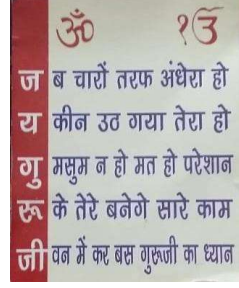 ॐ ੴ
ज ब चारों तरफ अंधेरा हो
य कीन उठ गया तेरा हो
गु मसुम न हो मत हो परेशान
रू के तेरे बनेगे सारे काम
जी वन में कर बस गुरूजी का ध्यान